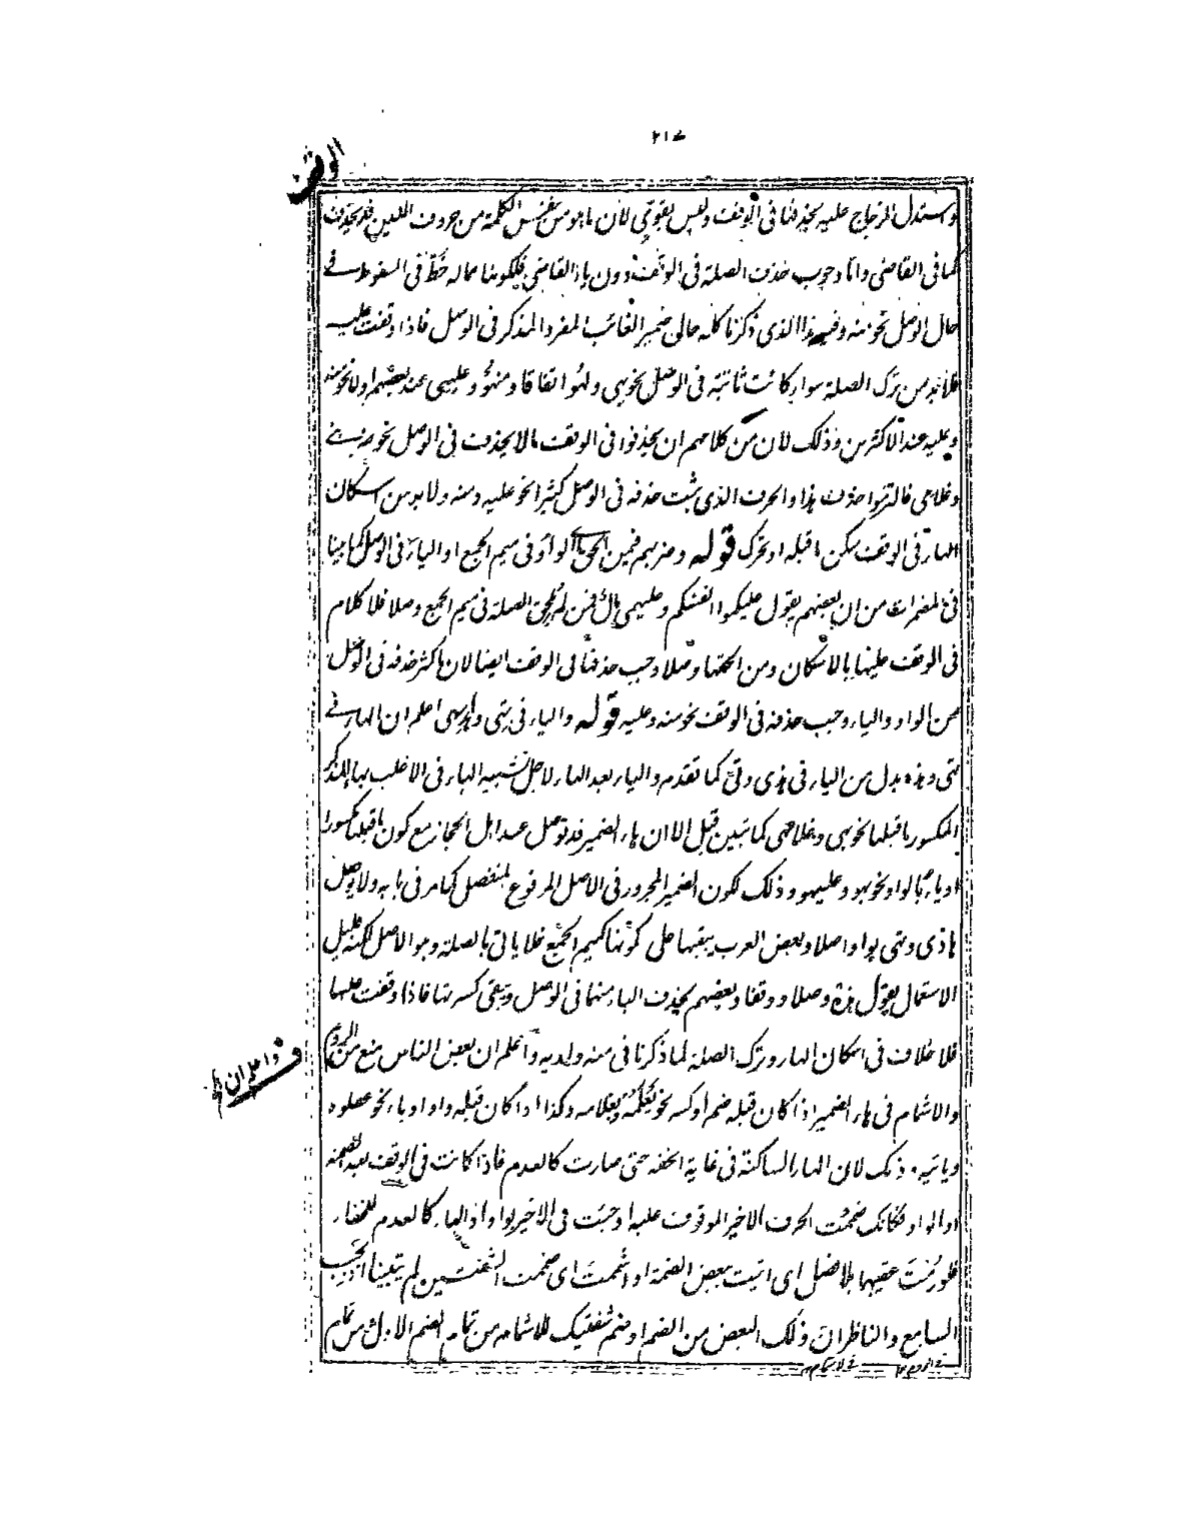 ٢١٧
الوقف
واستدل الزجاج عليه بحذفها فى الوقف وليس بقوى لان ما هو من نفس الكلمة من حروف اللين قد يحذف
كما فى القاضى وانما وجوب حذف الصلة فى الوقف دون ياء القاضى فلكونها مما له حظ فى السقوط فى
حال الوصل نحو منه وفيه هذا الذى ذكرنا كله حال ضمير الغائب المفرد المذكر فى الوصل فاذا وقفت عليه
فلا بد من ترك الصلة سواء كانت ثابتة فى الوصل نحو بهى ولهو اتفاقا ومنهو وعليهى عند بعضهم اولا نحو منه
وعليه عند الاكثرين وذلك لان من كلامهم ان يحذفوا فى الوقف ما لا يحذف فى الوصل نحو ضربنى
وغلامى فالتزموا حذف هذا والحرف الذى يثبت حذفه فى الوصل كثيرا نحو عليه ومنه ولا بد من اسكان
الهاء فى الوقف سكن ما قبله او تحرك قوله وضربهم فيمن الحق الواو فى ميم الجمع او الياء فى الوصل كما بينا
فى المضمرات من ان بعضهم يقول عليكموا انفسكم وعليهمى مال فمن لم يلحق الصلة فى ميم الجمع وصلا فلا كلام
فى الوقف عليها بالاسكان ومن الحقها وصلا وجب حذفها فى الوقف ايضا لان ما كثر حذفه فى الوصل
من الواو والياء وجب حذفه فى الوقف نحو منه وعليه قوله والياء فى تهى وهذهى اعلم ان الهاء فى
تهى وهذه بدل من الياء فى هذى وتى كما تقدم والياء بعد الهاء لاجل تشبيه الهاء فى الاغلب بهاء المذكر
المكسور ما قبلها نحو بهى وغلامهى كما تبين قبل الا ان هاء الضمير قد توصل عند اهل الحجاز مع كون ما قبلها مكسورا
او ياء بالواو نحو بهو وعليهو وذلك لكون الضمير المجرور فى الاصل المرفوع المنفصل كما مر فى بابه ولا يوصل
هاء ذى وتهى بواو اصلا وبعض العرب يبقيها على سكونها كميم الجمع فلا ياتى بالصلة وهو الاصل لكنه قليل
الاستعمال يقول هذه وصلا ووقفا وبعضهم يحذف الياء منها فى الوصل ويبقى كسرتها فاذا وقفت عليها
فلا خلاف فى اسكان الهاء وترك الصلة لما ذكرنا فى منه ولديه واعلم ان بعض الناس منع من الروم
والاشمام فى هاء الضمير اذا كان قبله ضم او كسر نحو يعلمه وبغلامه وكذا اذا كان قبله واو او ياء نحو عصلوه
وبابيه وذلك لان الهاء الساكنة فى غاية الخفة حتى صارت كالعدم فاذا كانت فى الوقف بعد الضمة
او الواو فكانك ضممت الحرف الاخير الموقوف عليه او جئت فى الاخير بواو اذ الهاء كالعدم للخفاء
فلو رُمْتَ عقيبها بلا فصل اى اتيت ببعض الضمة او اشممت اى ضممت الشفتين لم يتبينا اذ يحسب
السامع والناظر ان ذلك البعض من الضم او ضم شفتيك للاشمام من تمام الضم الاول من تمام
فى الروم ١٢
فى الاشمام ١٢
ف واعلم ان